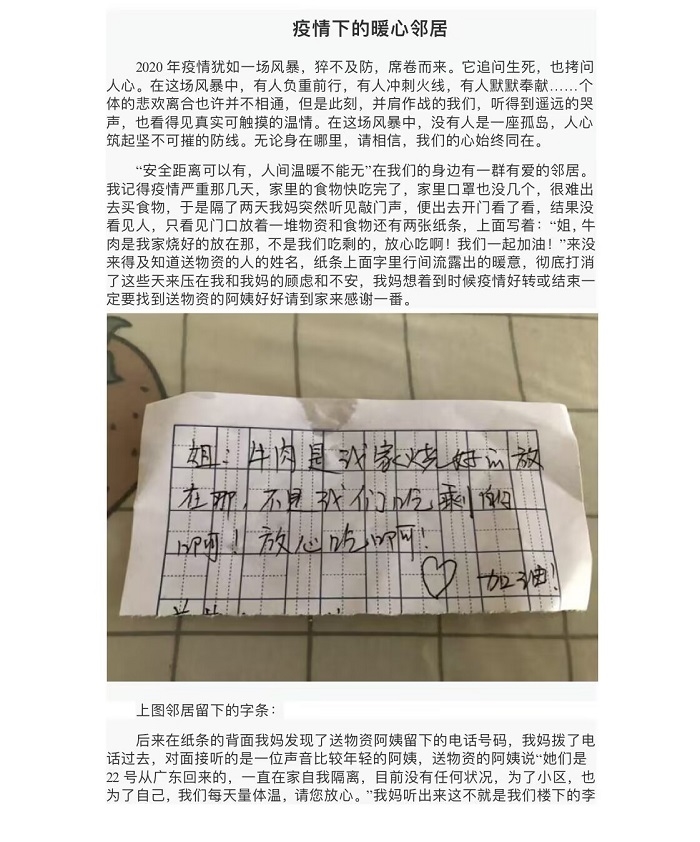 疫情下的暖心邻居
2020 年疫情犹如一场风暴，猝不及防，席卷而来。它追问生死，也拷问
人心。在这场风暴中，有人负重前行，有人冲刺火线，有人默默奉献……个
体的悲欢离合也许并不相通，但是此刻，并肩作战的我们，听得到遥远的哭
声，也看得见真实可触摸的温情。在这场风暴中，没有人是一座孤岛，人心
筑起坚不可摧的防线。无论身在哪里，请相信，我们的心始终同在。
“安全距离可以有，人间温暖不能无”在我们的身边有一群有爱的邻居。
我记得疫情严重那几天，家里的食物快吃完了，家里口罩也没几个，很难出
去买食物，于是隔了两天我妈突然听见敲门声，便出去开门看了看，结果没
看见人，只看见门口放着一堆物资和食物还有两张纸条，上面写着：“姐，牛
肉是我家烧好的放在那，不是我们吃剩的，放心吃啊！我们一起加油！”来没
来得及知道送物资的人的姓名，纸条上面字里行间流露出的暖意，彻底打消
了这些天来压在我和我妈的顾虑和不安，我妈想着到时候疫情好转或结束一
定要找到送物资的阿姨好好请到家来感谢一番。
姐：牛肉是我家烧好的放
在那，不是我们吃剩的
啊！放心吃啊！
加油！
上图邻居留下的字条：
后来在纸条的背面我妈发现了送物资阿姨留下的电话号码，我妈拨了电
话过去，对面接听的是一位声音比较年轻的阿姨，送物资的阿姨说“她们是
22 号从广东回来的，一直在家自我隔离，目前没有任何状况，为了小区，也
为了自己，我们每天量体温，请您放心。”我妈听出来这不就是我们楼下的李